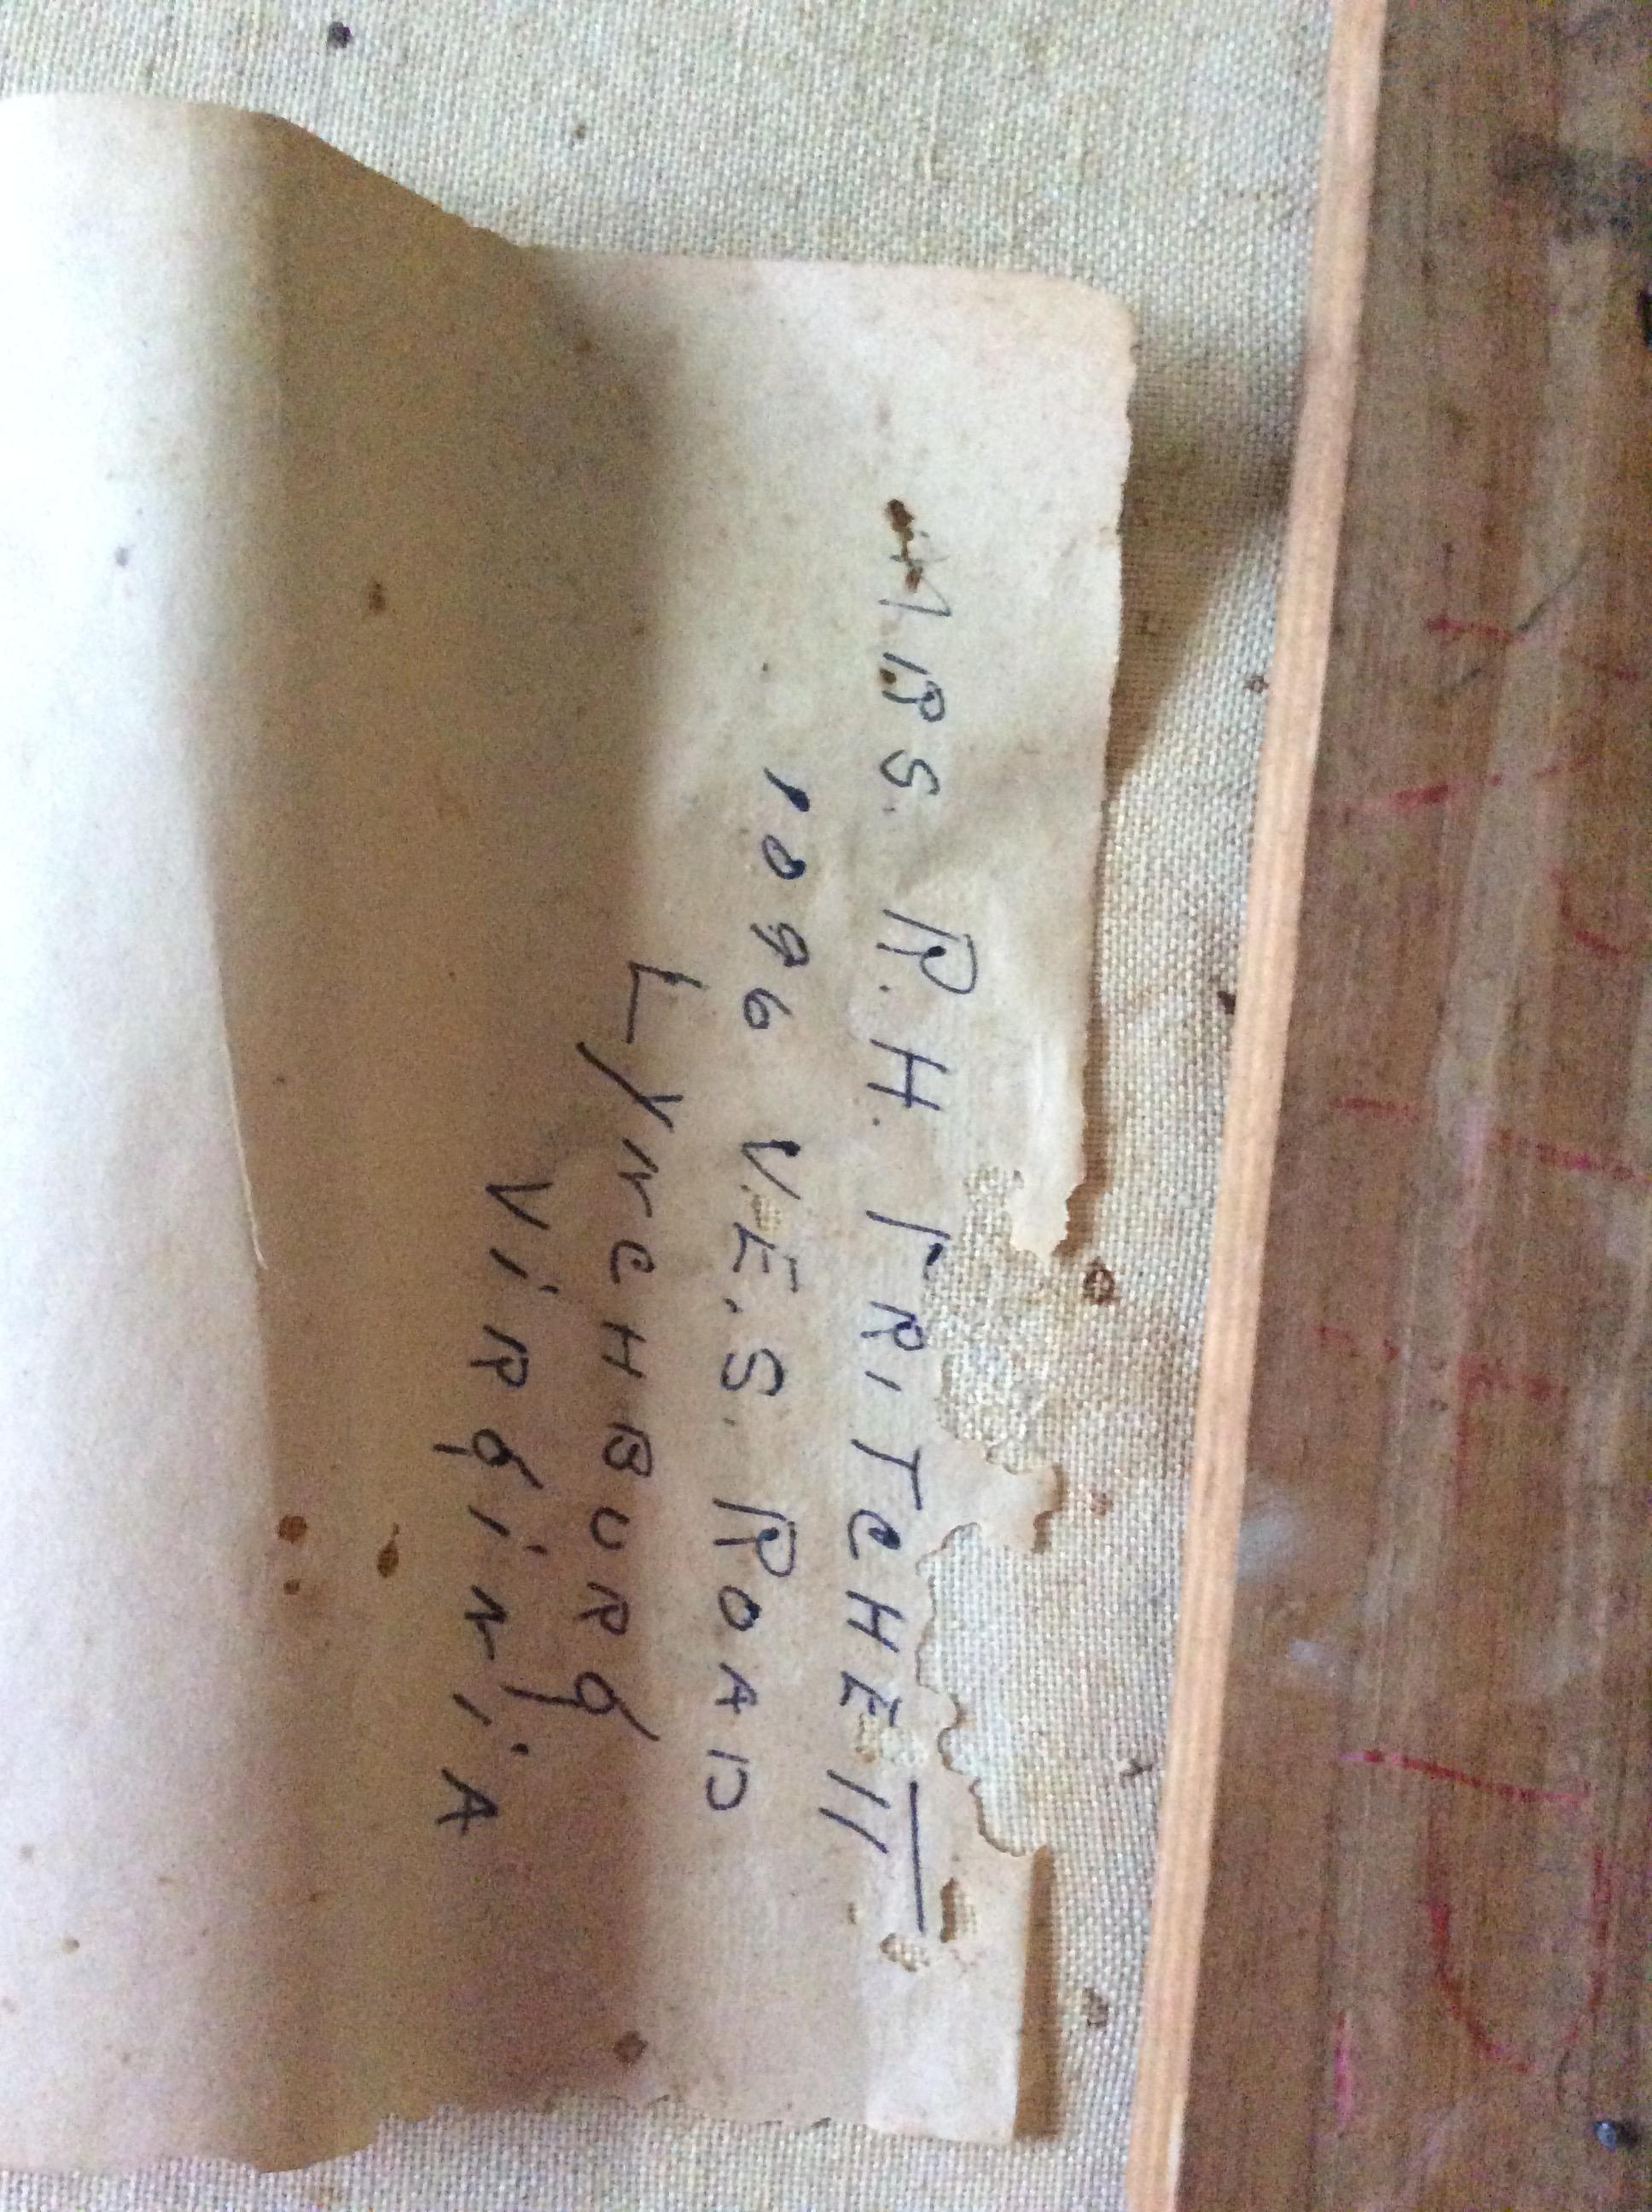 MRS. R. H. FRITCHE II
1096 V.E.S. ROAD
LYNCHBURG
VIRGINIA